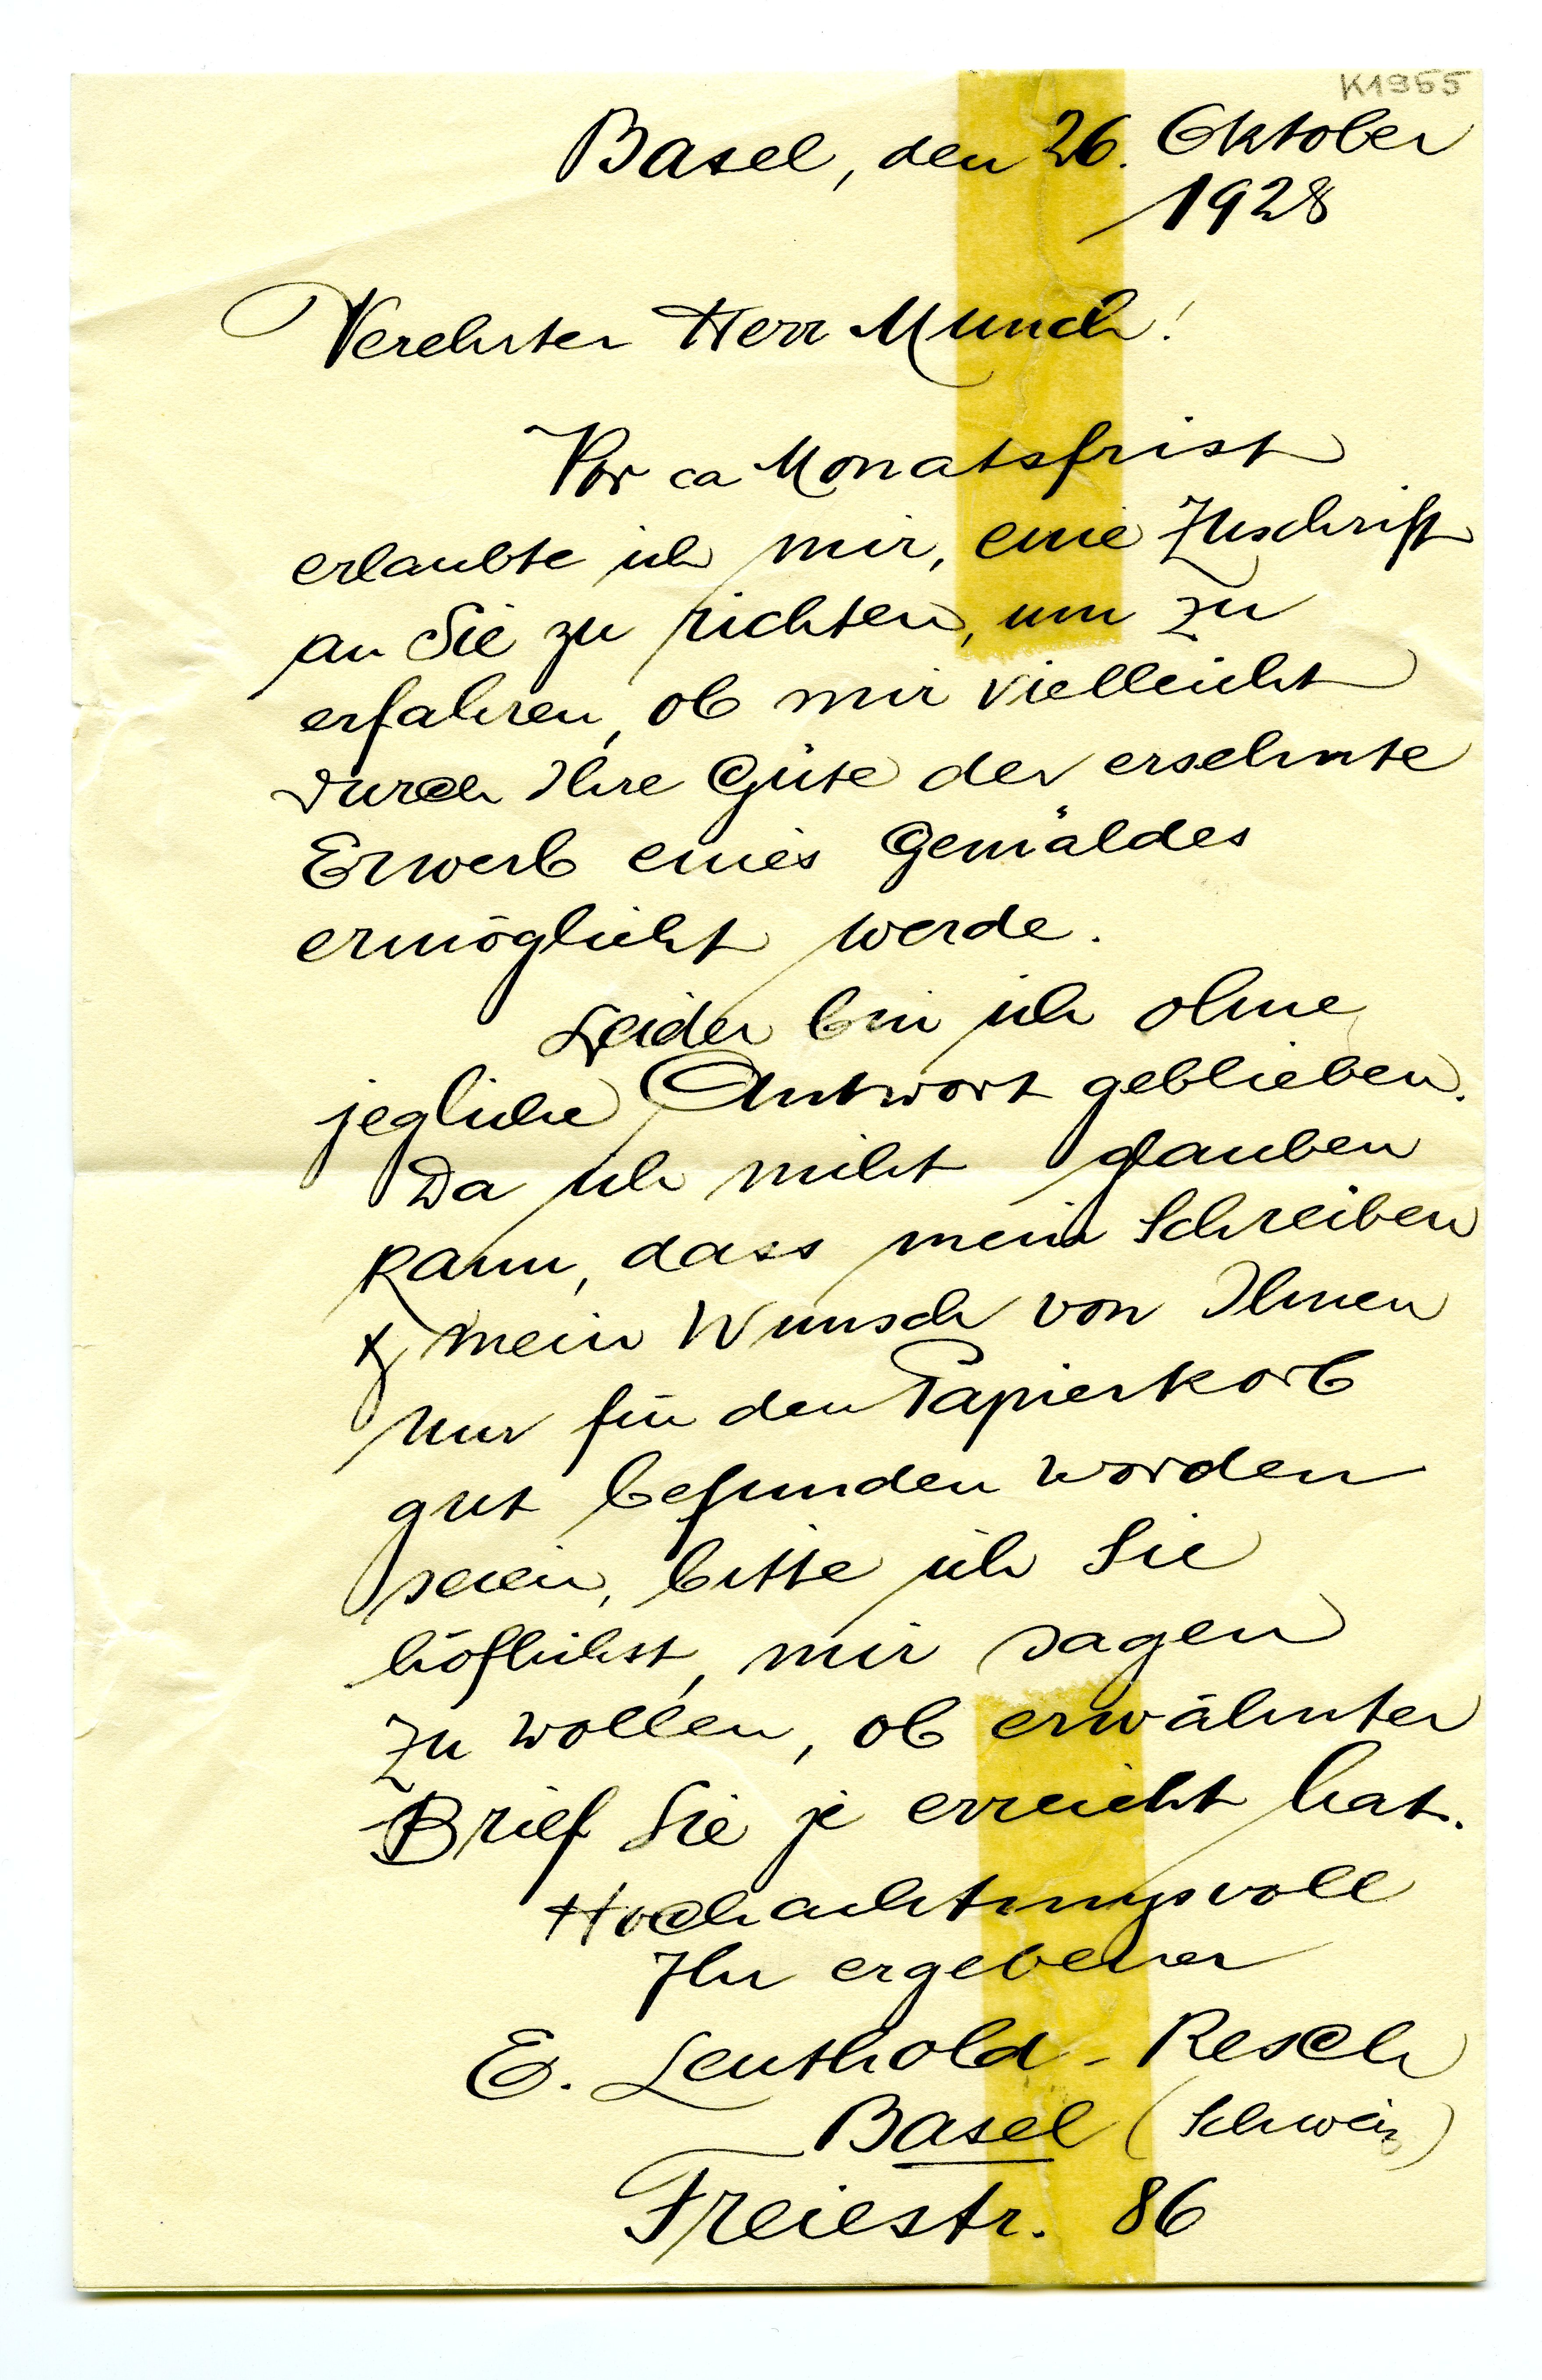 K1955
Basel, den 26. Oktober
1928
Verehrter Herr Munch!
Vor ca Monatsfrist
erlaubte ich mir, eine Zuschrift
an Sie zu richten, um zu
erfahren, ob mir vielleicht
durch Ihre Güte der ersehnte
Erwerb eines Gemäldes
ermöglicht werde.
Leider bin ich ohne
jegliche Antwort geblieben.
Da ich nicht glauben
kann, dass mein Schreiben
& mein Wunsch von Ihnen
nur für den Papierkorb
gut befunden worden
seien, bitte ich Sie
höflichst, mir sagen
zu wollen, ob erwähnter
Brief Sie je erreicht hat.
Hochachtungsvoll
Ihr ergebener
E. Leuthold-Resch
Basel (Schweiz)
Freiestr. 86